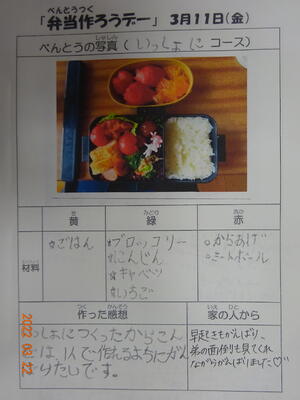 べんとうつく
「弁当作ろうデー」 3月11日(金)
しゃしん
べんとうの写真(いっしょにコース)
き
黄
みどり
緑
あか
赤
ざいりょう
材料
☆ごはん
☆ブロッコリー
☆にんじん
☆キャベツ
☆いちご
からあげ
ミートボール
つく かんそう
作った感想
いえ ひと
家の人から
いっしょにつくったからこん
では、1人で作れるようにがん
けたいです。
早起きもがんばり、
弟の面倒も見てくれ
ながらがんばりました♡
2022 03 12